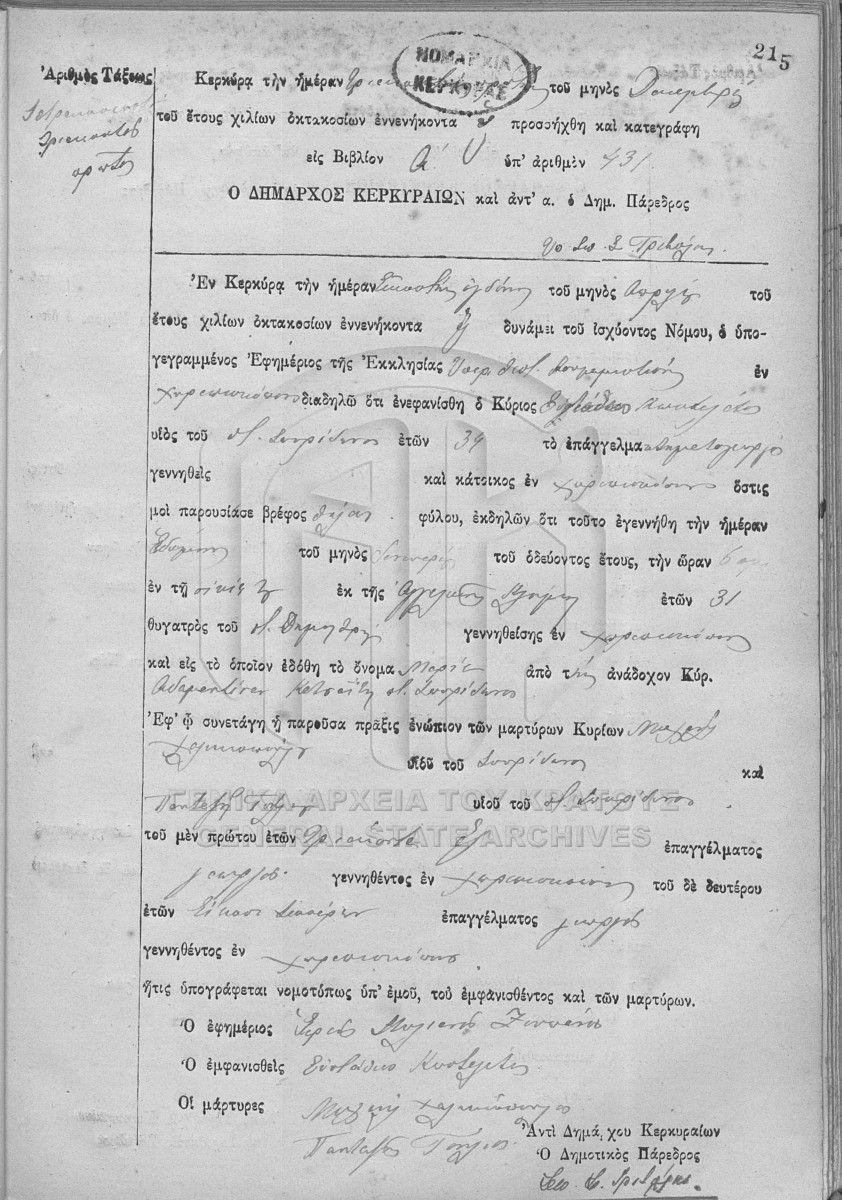 215
ΝΟΜΑΡΧΙΑ
ΚΕΡΚΥΡΑΣ
Ἀριθμὸς Τάξεως
Τετρακοσιοστὸ
Τριακοστὸς
πρῶτος
Κερκύρᾳ τὴν ἡμέραν τοῦ μηνὸς Δεκεμβρίου
τοῦ ἔτους χιλίων ὀκτακοσίων ἐννενήκοντα προσήχθη καὶ κατεγράφη
εἰς Βιβλίον Α' ὑπ' ἀριθμὸν 431
Ο ΔΗΜΑΡΧΟΣ ΚΕΡΚΥΡΑΙΩΝ καὶ ἀντ' α. ὁ Δημ. Πάρεδρος
Ἐν Κερκύρᾳ τὴν ἡμέραν Εἰκοστὴν ὀγδόην τοῦ μηνὸς Απριλίου τοῦ
ἔτους χιλίων ὀκτακοσίων ἐννενήκοντα ἓξ δυνάμει τοῦ ἰσχύοντος Νόμου, ὁ ὑπο-
γεγραμμένος Ἐφημέριος τῆς Ἐκκλησίας Ὑπερ. Θεοτ. ἐν
χωρεπισκόπους διαδηλῶ ὅτι ἐνεφανίσθη ὁ Κύριος Εὐστάθιος Κωστελέτος
υἱὸς τοῦ ποτ. Σπυρίδωνος ἐτῶν 34 τὸ ἐπάγγελμα κτηματογεωργὸς
γεννηθεὶς καὶ κάτοικος ἐν χωρεπισκόπους ὅστις
μοὶ παρουσίασε βρέφος θήλεος φύλου, ἐκδηλῶν ὅτι τοῦτο ἐγεννήθη τὴν ἡμέραν
Ἑβδόμην τοῦ μηνὸς τοῦ ὁδεύοντος ἔτους, τὴν ὥραν 6
ἐν τῇ οἰκίᾳ ἐκ τῆς Ἀγγελικῆς ἐτῶν 31
θυγατρὸς τοῦ ποτ. Δημητρίου γεννηθείσης ἐν χωρεπισκόπους
καὶ εἰς τὸ ὁποῖον ἐδόθη τὸ ὄνομα Μαρία ἀπὸ τὴν ἀνάδοχον Κύρ.
Αδαμαντίναν Κατσαΐτη ποτ. Σπυρίδωνος
Ἐφ' ᾧ συνετάγη ἡ παροῦσα πρᾶξις ἐνώπιον τῶν μαρτύρων Κυρίων Μιχαὴλ
Χαλικιοπούλου υἱοῦ τοῦ Σπυρίδωνος καὶ
Πανταζῆ υἱοῦ τοῦ ποτ. Σπυρίδωνος
τοῦ μὲν πρώτου ἐτῶν Τριάκοντα ἓξ ἐπαγγέλματος
γεωργὸς γεννηθέντος ἐν χωρεπισκόπους τοῦ δὲ δευτέρου
ἐτῶν Εἴκοσι τεσσάρων ἐπαγγέλματος γεωργὸς
γεννηθέντος ἐν χωρεπισκόπους
ἥτις ὑπογράφεται νομοτύπως ὑπ' ἐμοῦ, τοῦ ἐμφανισθέντος καὶ τῶν μαρτύρων.
Ὁ ἐφημέριος Ἱερεὺς
Ὁ ἐμφανισθεὶς Εὐστάθιος Κωστελέτος
Οἱ μάρτυρες Μιχαὴλ Χαλικιόπουλος
Πανταζῆς
Ἀντὶ Δημάρχου Κερκυραίων
Ὁ Δημοτικὸς Πάρεδρος
ΓΕΝΙΚΑ ΑΡΧΕΙΑ ΤΟΥ ΚΡΑΤΟΥΣ
GENERAL STATE ARCHIVES